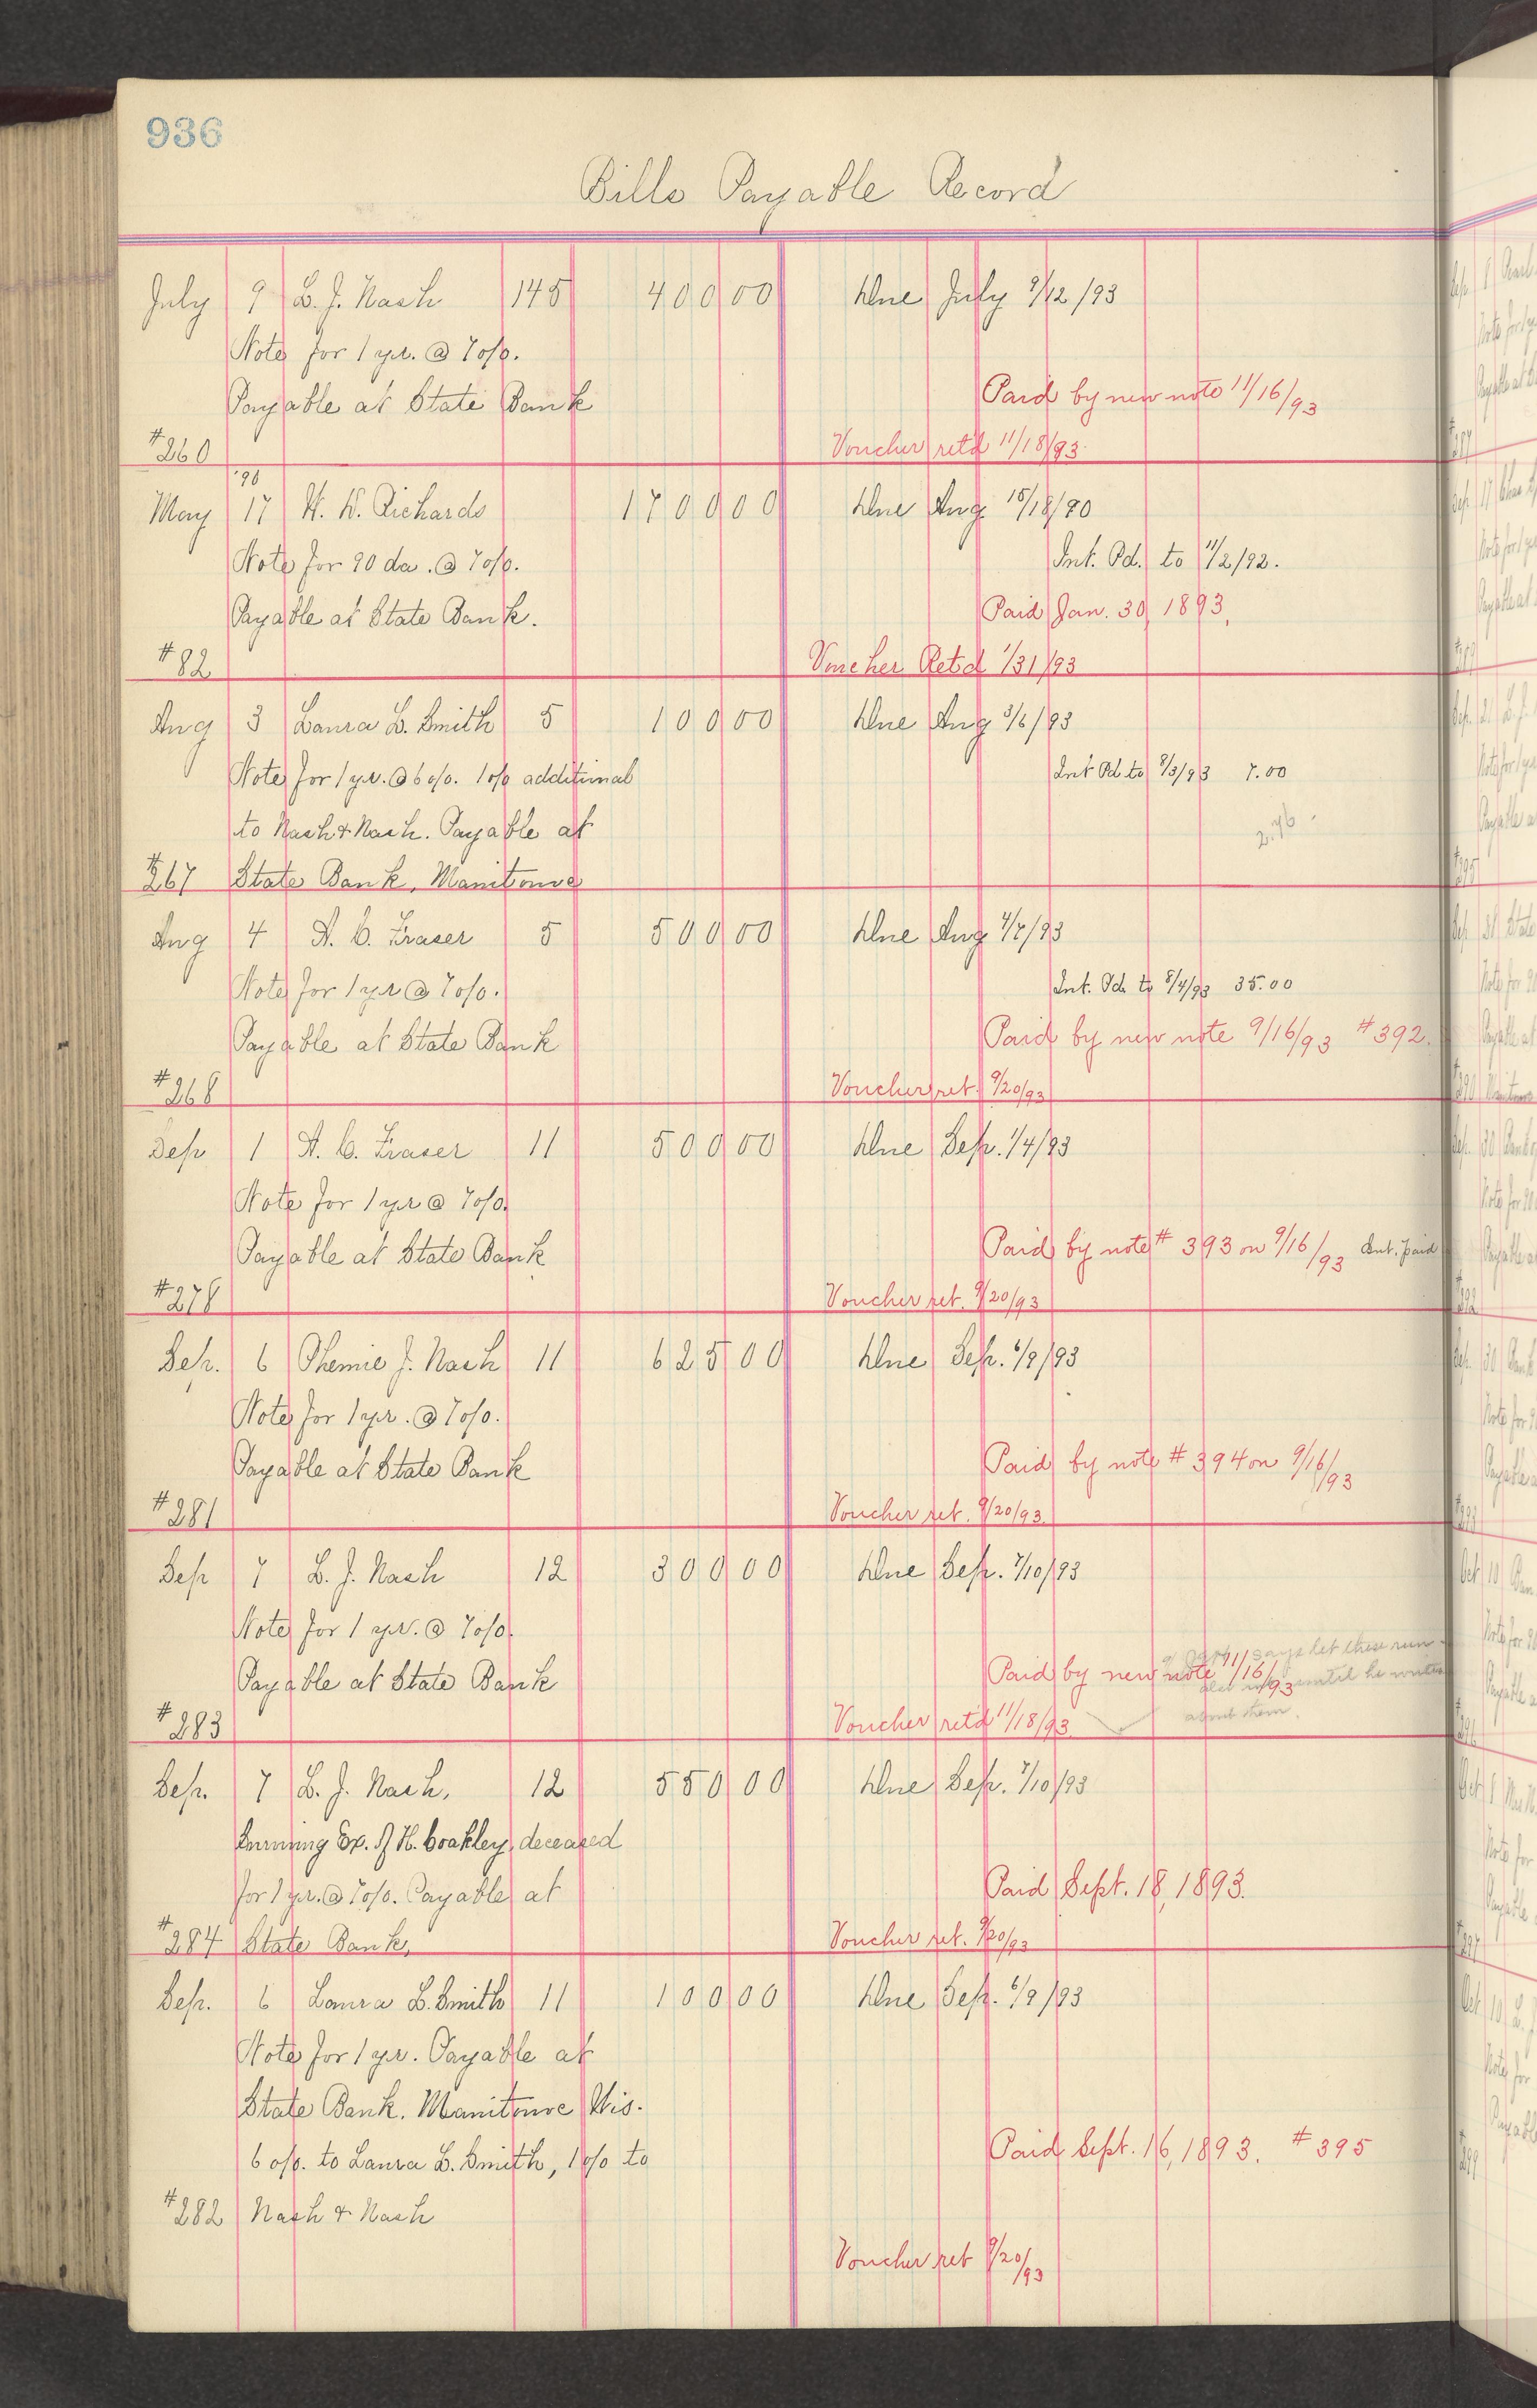 936
Bills Payable Record
July 9 L. J. Nash 145 400 00 Due July 9/12/93
Note for 1 yr. @ 7 o/o.
Payable at State Bank Paid by new note 11/16/93
#260 Voucher ret'd 11/18/93.
'90
May 17 W. W. Richards 1700 00 Due Aug. 15/18/90
Note for 90 da. @ 7 o/o. Int. Pd. to 11/2/92.
Payable at State Bank. Paid Jan. 30, 1893.
#82 Voucher Ret'd 1/31/93
Aug 3 Laura L. Smith 5 100 00 Due Aug 3/6/93
Note for 1 yr. @ 6 o/o. 1 o/o additional Int Pd to 8/3/93 7.00
to Nash & Nash. Payable at 2.76
#267 State Bank, Manitowoc
Aug 4 A. C. Fraser 5 500 00 Due Aug 4/7/93
Note for 1 yr @ 7 o/o. Int. Pd. to 8/4/93 35.00
Payable at State Bank Paid by new note 9/16/93 #392.
#268 Voucher ret. 9/20/93
Sep 1 A. C. Fraser 11 500 00 Due Sep. 1/4/93
Note for 1 yr @ 7 o/o.
Payable at State Bank Paid by note # 393 on 9/16/93 Int. paid
#278 Voucher ret. 9/20/93
Sep. 6 Phemie J. Nash 11 625 00 Due Sep. 6/9/93
Note for 1 yr. @ 7 o/o.
Payable at State Bank Paid by note # 394 on 9/16/93
#281 Voucher ret. 9/20/93.
Sep 7 L. J. Nash 12 300 00 Due Sep. 7/10/93
Note for 1 yr. @ 7 o/o. says let these run
Payable at State Bank Paid by new note 11/16/93 until he writes
#283 Voucher ret'd 11/18/93 about them.
Sep. 7 L. J. Nash, 12 550 00 Due Sep. 7/10/93
Running Ex. of H. Coakley, deceased
for 1 yr. @ 7 o/o. Payable at Paid Sept. 18, 1893.
#284 State Bank, Voucher ret. 9/20/93
Sep. 6 Laura L. Smith 11 100 00 Due Sep. 6/9/93
Note for 1 yr. Payable at
State Bank. Manitowoc Wis.
6 o/o. to Laura L. Smith, 1 o/o to Paid Sept. 16, 1893. #395
#282 Nash & Nash
Voucher ret 9/20/93